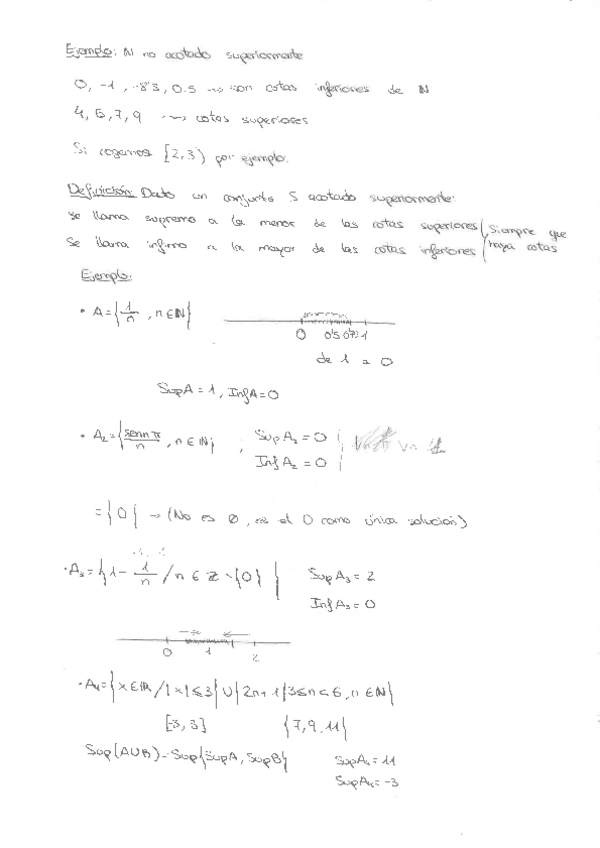 Ejemplo: N no acotado superiormente
0, -1, -83, 0.5 ~> son cotas inferiores de N
4, 5, 7, 9 ~> cotas superiores
Si cogemos [2,3) por ejemplo.
Definición: Dado un conjunto S acotado superiormente:
se llama supremo a la menor de las cotas superiores (Siempre que
Se llama ínfimo a la mayor de las cotas inferiores (haya cotas
Ejemplo:
• A = {1/n, n ∈ N}
0 0'5 1
de 1 a 0
Sup A = 1, Inf A = 0
• A₂ = {sen n π/n, n ∈ N} ; Sup A₂ = 0
Inf A₂ = 0
= {0} → (No es ∅, es el 0 como única solución)
• A₃ = {1 - 1/n / n ∈ Z - {0}} Sup A₃ = 2
Inf A₃ = 0
0 1 2
• A₄ = {x ∈ R / |x| ≤ 3} U {2n+1 / 3 ≤ n < 6, n ∈ N}
[-3, 3] {7, 9, 11}
Sup(AUB) = Sup{SupA, SupB} Sup A₄ = 11
Sup A₄ = -3